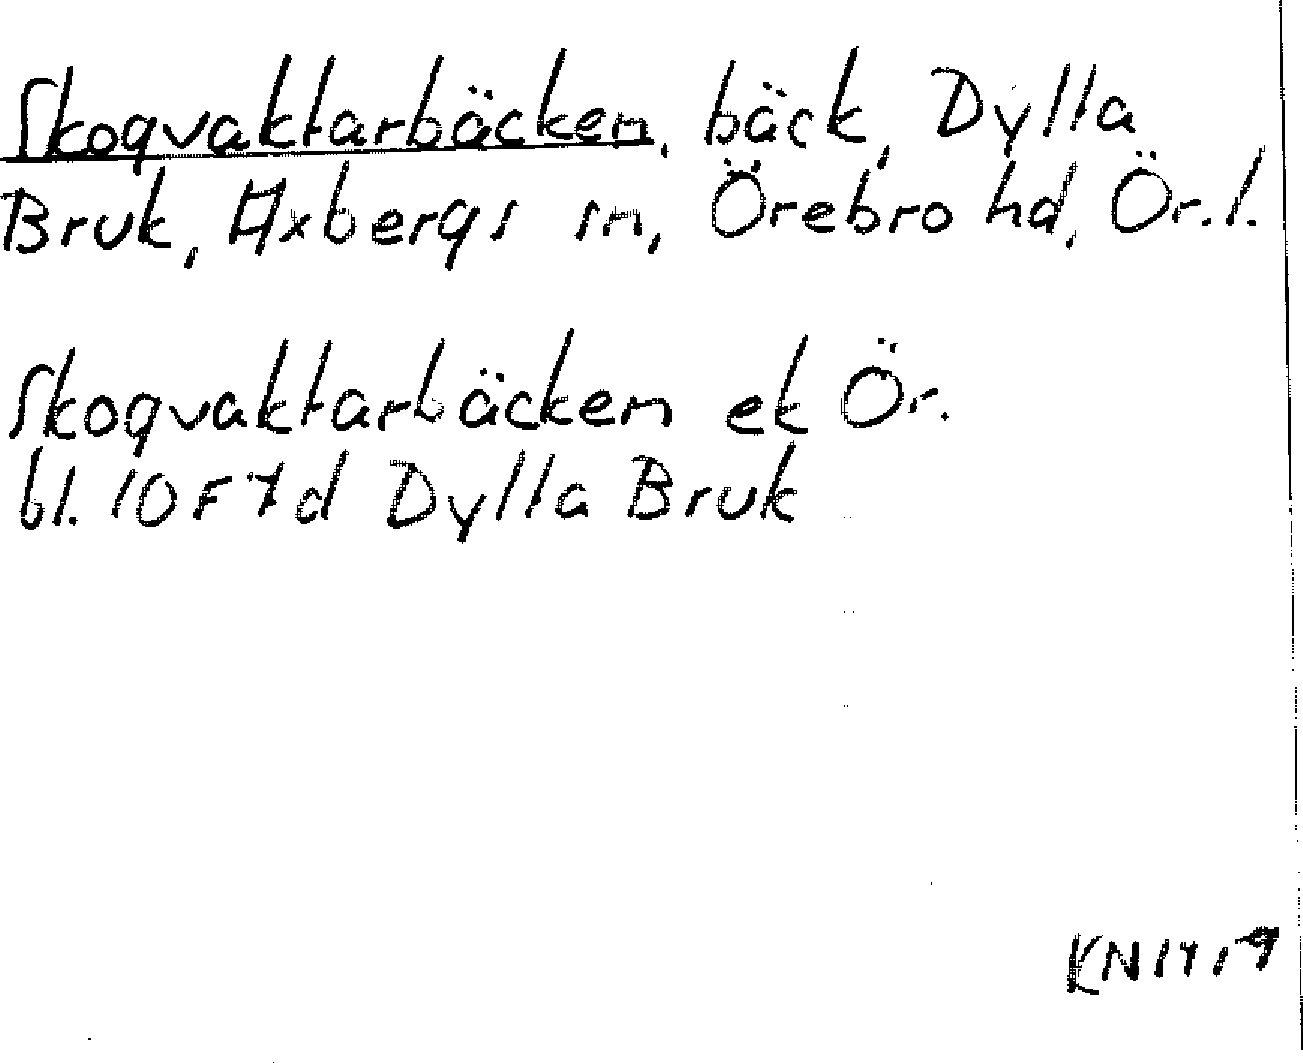 Skogvaktarbäcken, bäck, Dylla
Bruk, Axbergs sn, Örebro hd, Ör. l.
Skogvaktarbäcken ek Ör.
bl. 10F7d Dylla Bruk